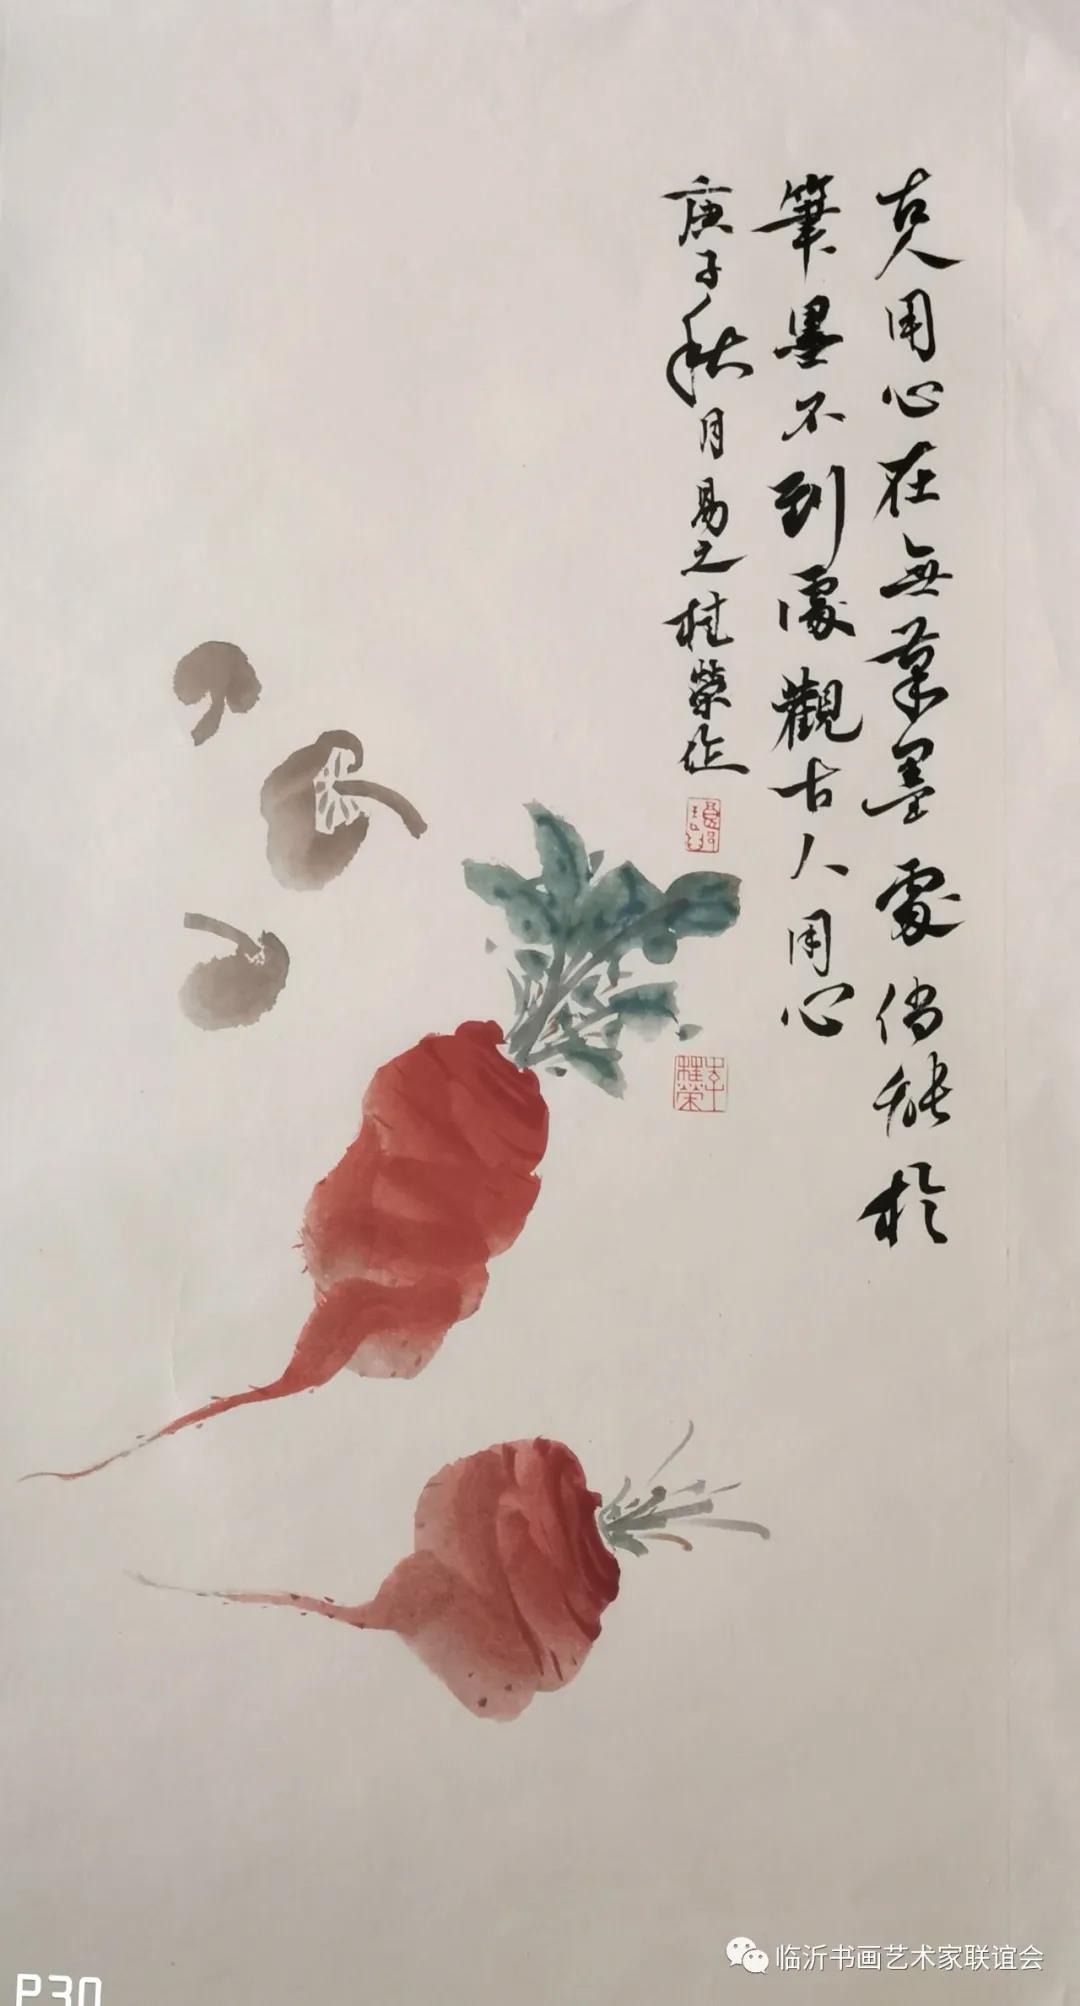 古人用心在無筆墨處倘能於
筆墨不到處觀古人用心
庚子秋月易之桂榮作
李桂荣
临沂书画艺术家联谊会
P30